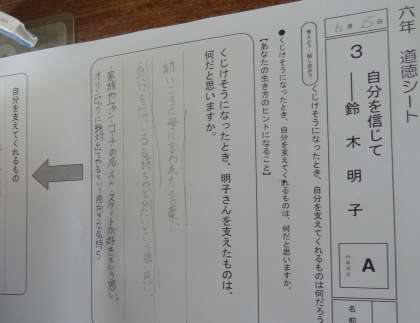 六年 道徳シート
6月25日
3 自分を信じて
――鈴木明子
A
内容項目
名前
考えよう・話し合おう
くじけそうになったとき、自分を支えてくれるものは何だろう
●くじけそうになったとき、自分を支えてくれるものは、何だと思いますか。
【あなたの生き方のヒントになること】
くじけそうになったとき、明子さんを支えたものは、
何だと思いますか。
幼いころに母に言われた言葉。
自分を信じる気持ち
という思い。
・家族やファン、コーチの応えん・スケートが好きという思い。
・オリンピックに絶対出てやるという前向きな気持ち
自分を支えてくれるもの